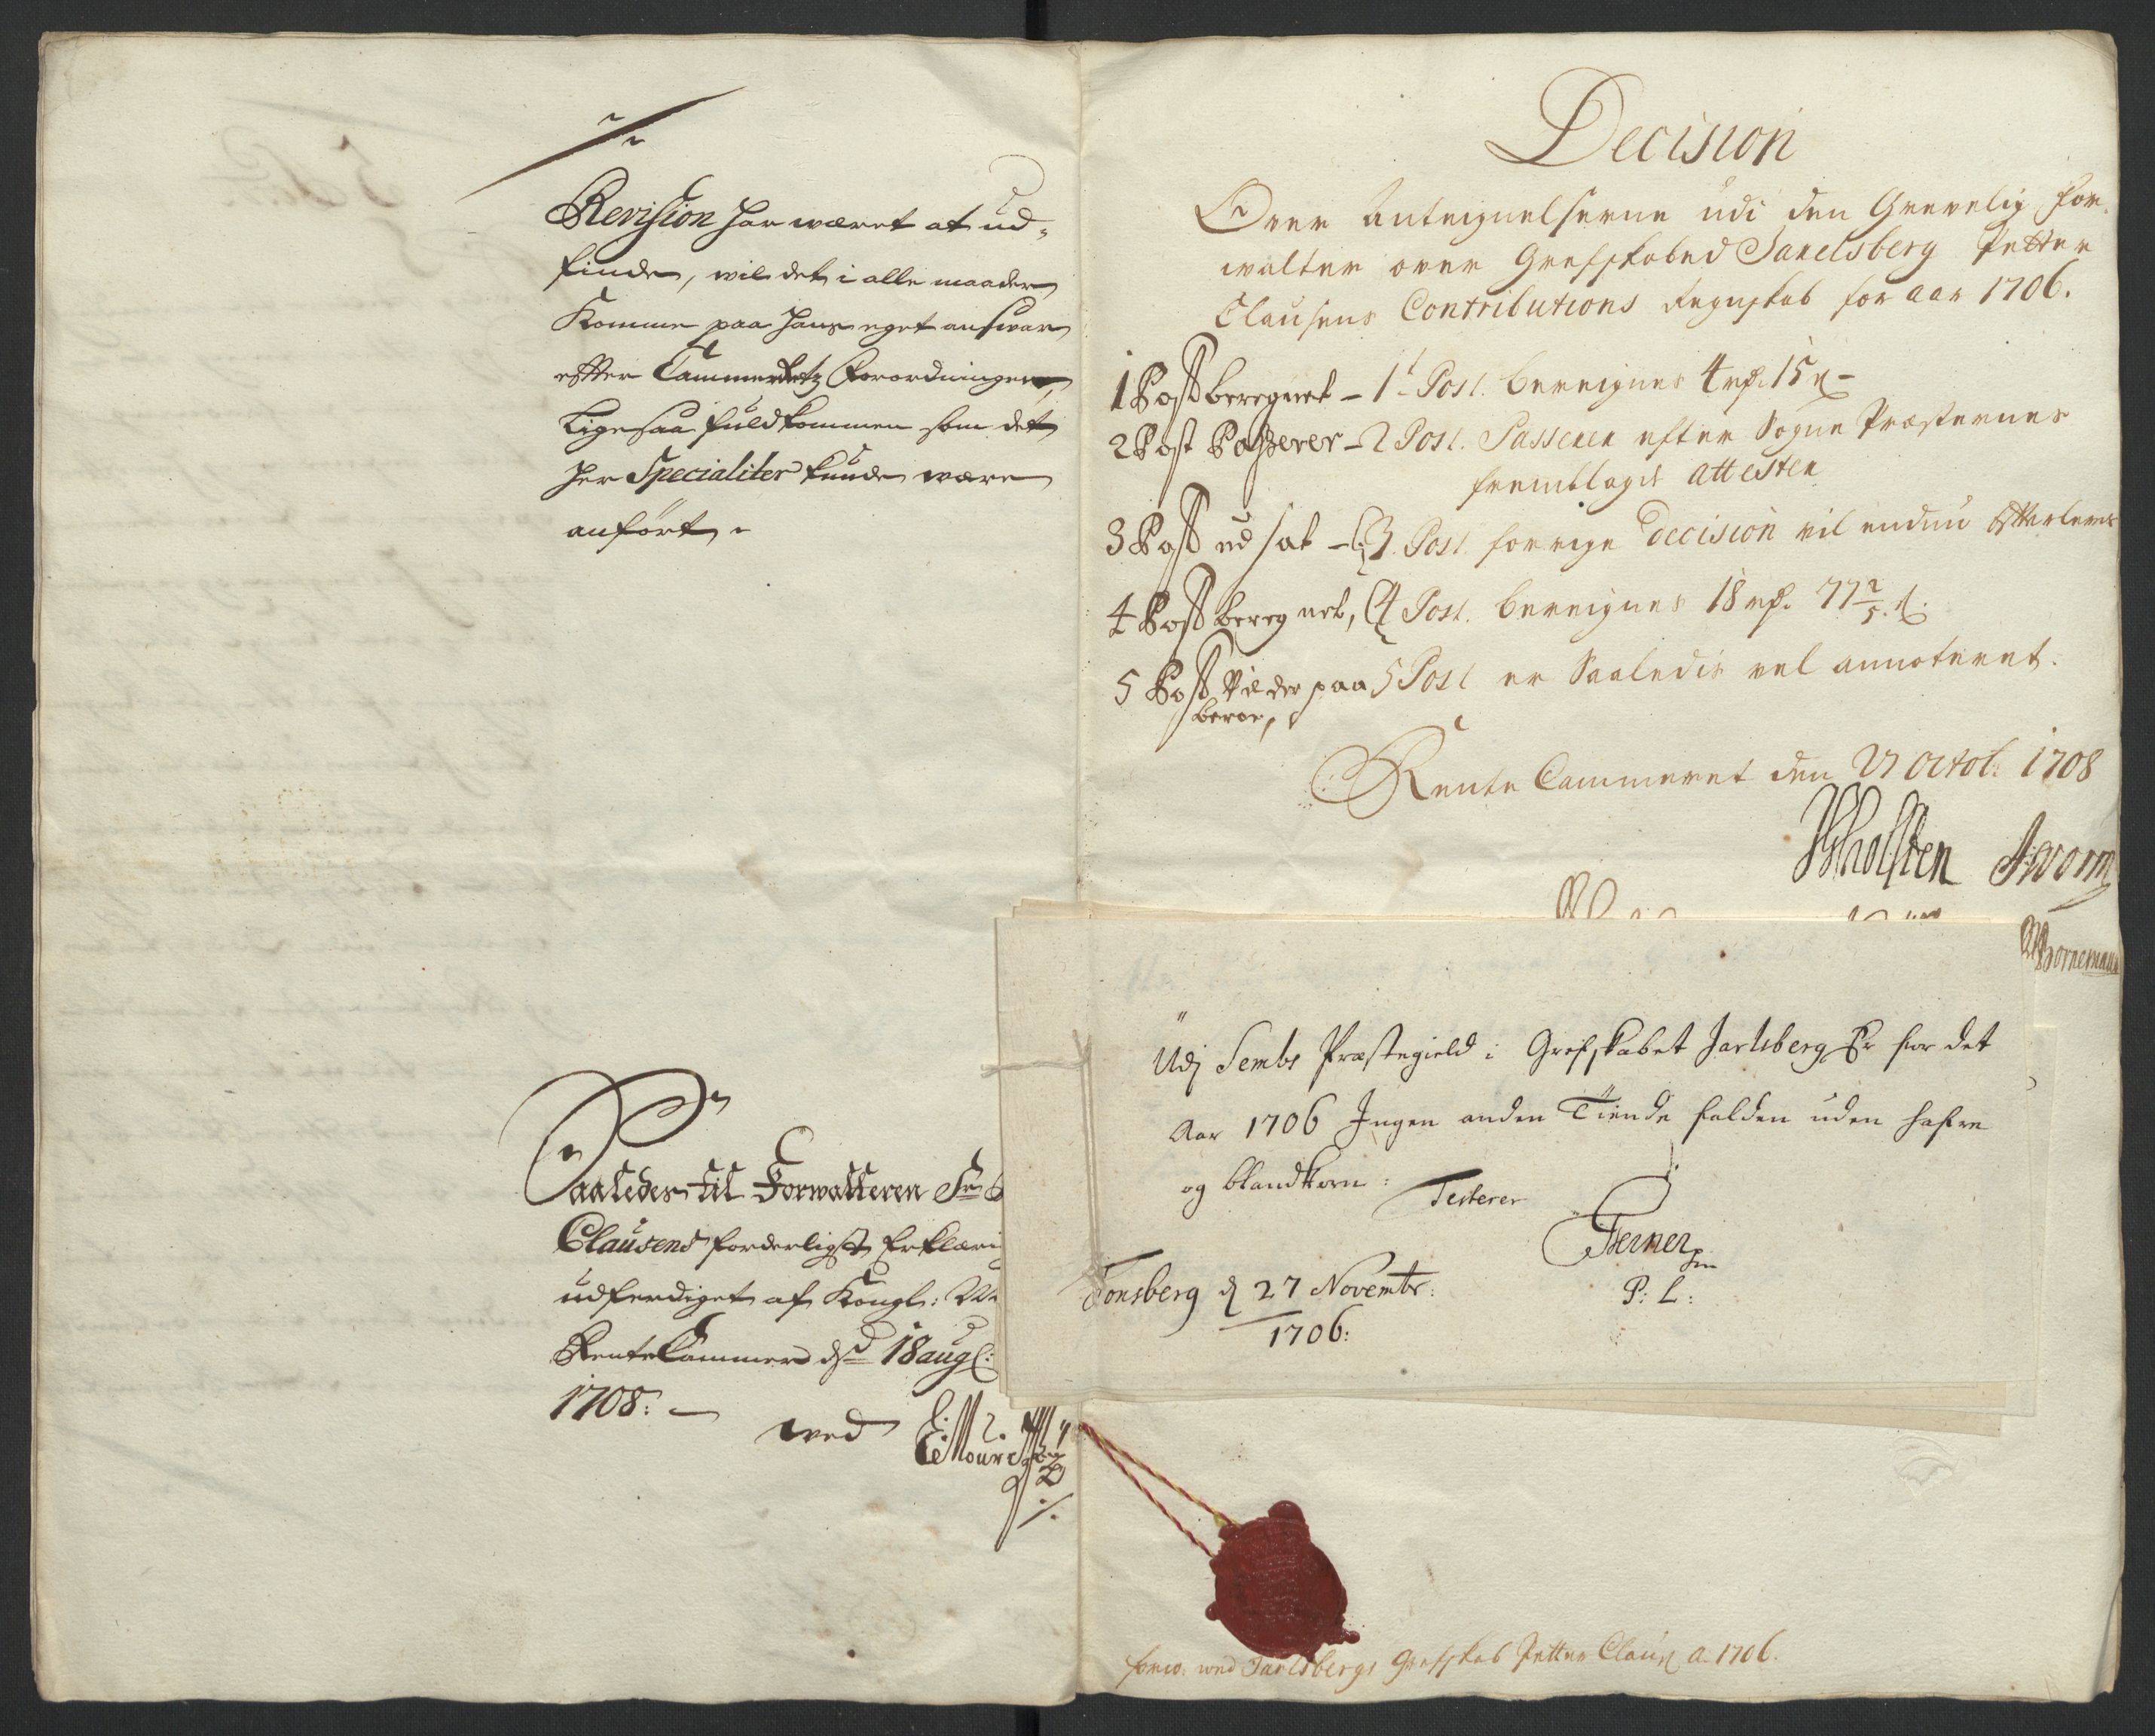 Revision har wæret at ud-
finde, wil det i alle maader
Komme paa hans eget answar
efter Cammer Forordningen,
Ligesaa fuldkommen som det
her Specialiter kunde være
anført.
Saaledes til Forwalteren Sr
Clausens forderligst Erklæri
udferdiget af Kongl:
Rente Cammer d 18 aug:
1708.
wed
Decision
Over Antegnelserne udi den Grevelig For-
walter over Grefskabed Jarelsberg Petter
Clausens Contributions Regnskab for aar 1706.
1 Post beregnet – 1t Post. beregnes 4 rd. 15 s –
2 Post Passerer – 2 Post. Passerer efter Sogne Præsternes
fremblagde attester
3 Post udsat – 3. Post. forrige Decision vil endnu efterleves
4 Post beregnet, 4 Post. beregnes 18 rd. 77 2/5 s.
5 Post Vil der paa 5 Post er Saaledis vel annoteret.
beroe,
Rente Cammeret den 27 Octob: 1708
Holsten Worm
Bornemann
Udj Sembs Præstegield i Grefskabet Jarlsberg Er for det
Aar 1706 Ingen anden Tiende falden uden hafre
og blandkorn:
Testerer
P: L:
Tonsberg d 27 Novembr:
1706:
forw: wed Jarlsbergs Grefskab Petter Claus a. 1706.